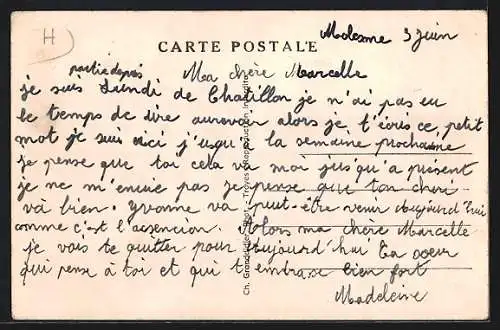 H
Molesme 3 juin
CARTE POSTALE
Ma chère Marcelle
partie depuis
je suis Lundi de Chatillon je n'ai pas eu
le temps de dire aurevoir alors je t'écris ce petit
mot je suis ici j'usqu'a la semaine prochaine
je pense que toi cela va moi jusqu'a présent
je ne m'ennuie pas je pense que ton cheri
va bien. Yvonne va peut-être venir aujourd'hui
comme c'est l'assencion. Alors ma chère Marcelle
je vais te quitter pour aujourd'hui Ta soeur
qui pense à toi et qui t'embrasse bien fort
Madeleine
Troyes - Reproduction interdite